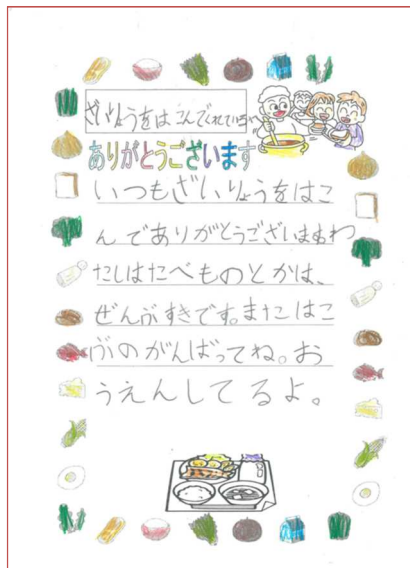 ざいりょうをはこんでくれている
ありがとうございます
いつもざいりょうをはこ
んでありがとうございますわ
たしはたべものとかは、
ぜんぶすきです。またはこ
ぶのがんばってね。お
うえんしてるよ。